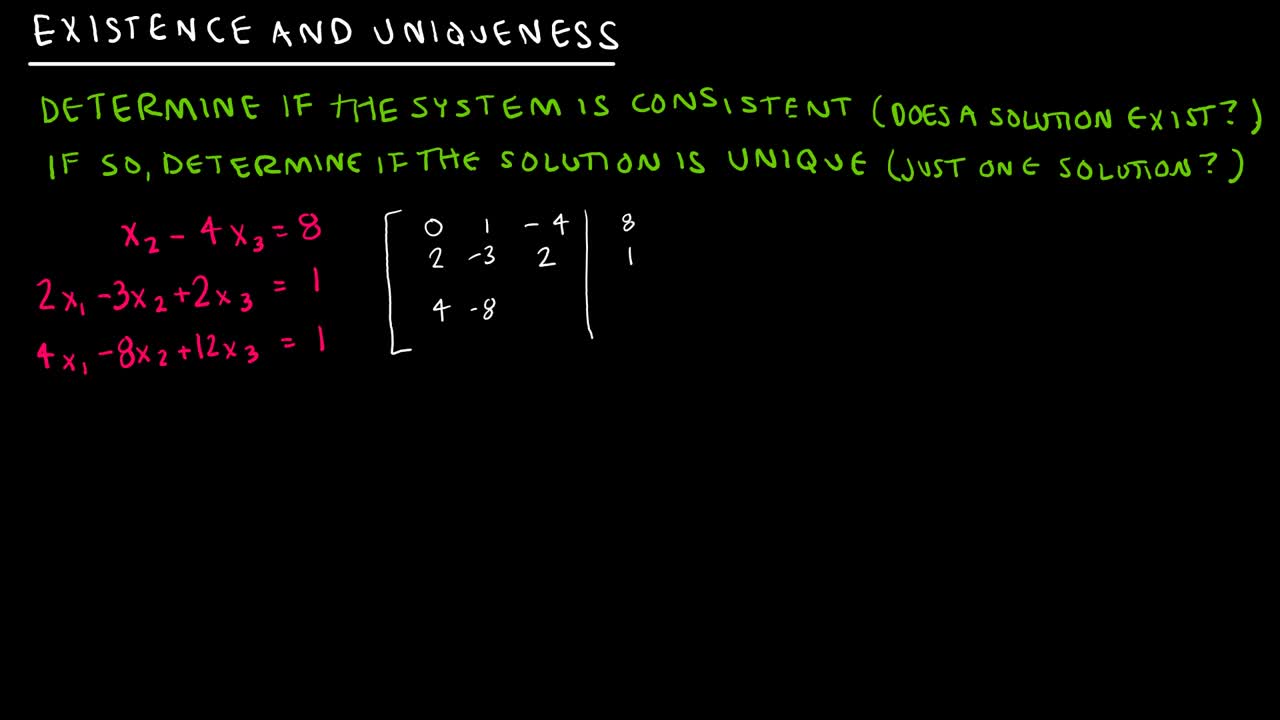 EXISTENCE AND UNIQUENESS
DETERMINE IF THE SYSTEM IS CONSISTENT (DOES A SOLUTION EXIST?)
IF SO, DETERMINE IF THE SOLUTION IS UNIQUE (JUST ONE SOLUTION?)
x₂ - 4x₃ = 8
2x₁ - 3x₂ + 2x₃ = 1
4x₁ - 8x₂ + 12x₃ = 1
0 1 -4 | 8
2 -3 2 | 1
4 -8